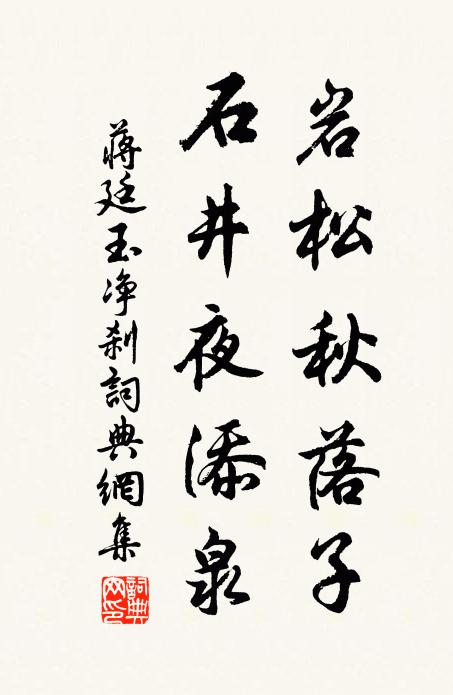 岩松秋落子
石井夜添泉
蒋廷玉净刹詞典網集
詞典网印